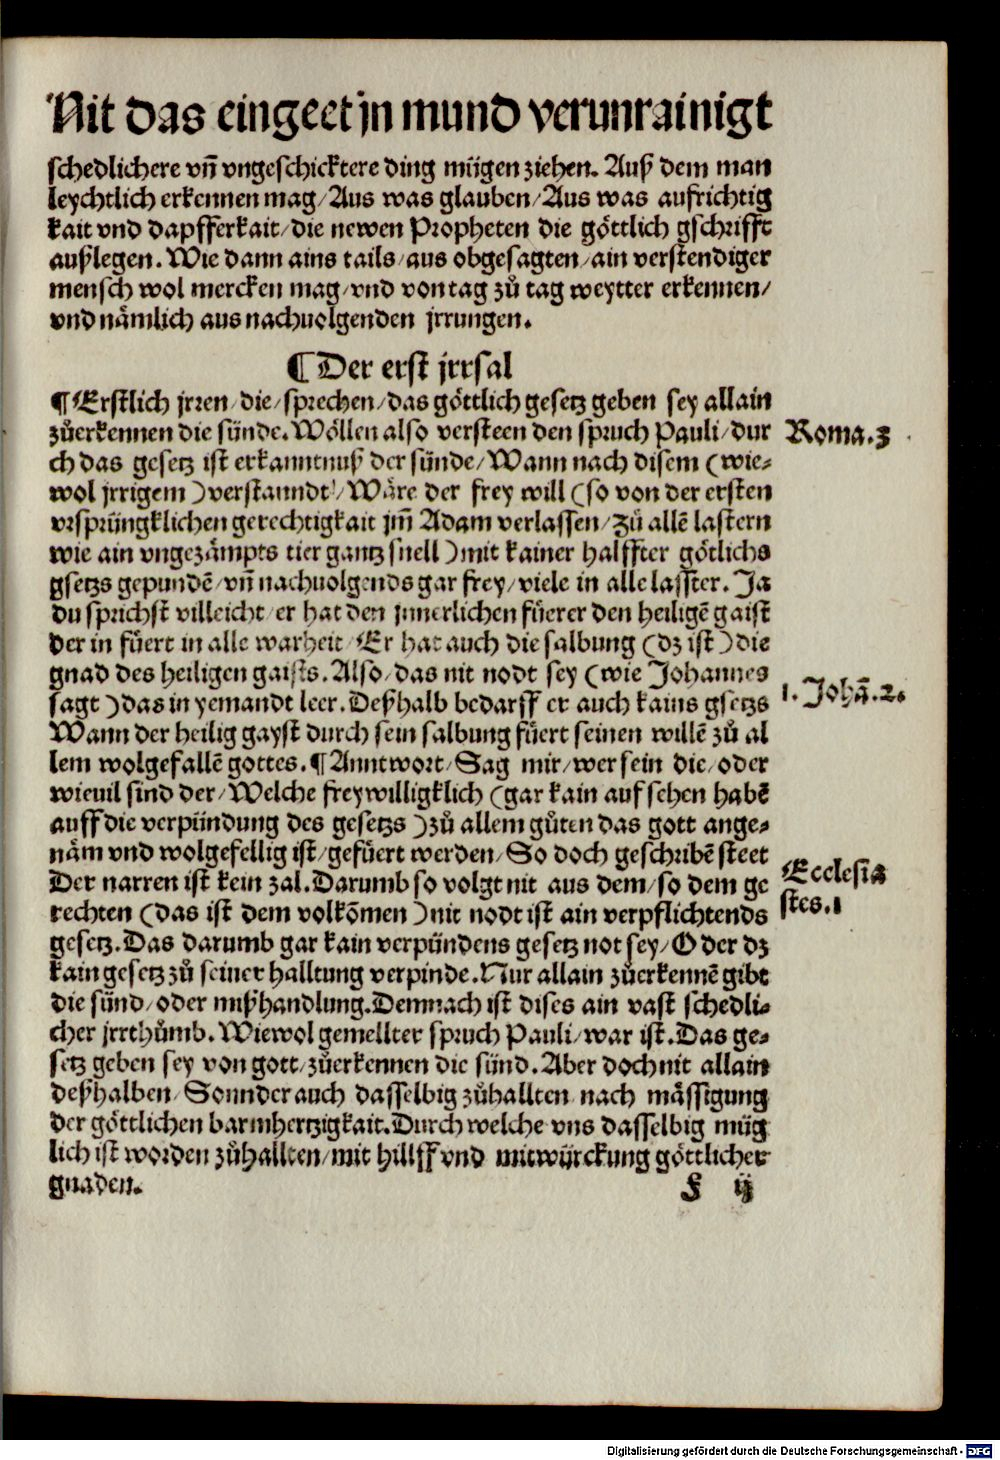 Nit das eingeet jn mund verunrainigt
schedlichere vñ vngeschicktere ding mügen ziehen. Auß dem man
leychtlich erkennen mag/Aus was glauben/Aus was aufrichtig
kait vnd dapfferkait/die newen Propheten die göttlich gschrifft
außlegen. Wie dann ains tails/aus obgesagten/ain verstendiger
mensch wol mercken mag/vnd von tag zů tag weytter erkennen/
vnd nämlich aus nachuolgenden jrrungen.
¶ Der erst jrrsal
¶ Erstlich jrren/die/sprechen/das göttlich gesetz geben sey allain
zůerkennen die sünde. Wöllen also versteen den spruch Pauli/dur
Roma.3
ch das gesetz ist erkanntnuß der sünde/Wann nach disem (wie⸗
wol jrrigem) verstanndt/Wäre der frey will (so von der ersten
vrsprüngklichen gerechtigkait jm̃ Adam verlassen/Zů allē lastern
wie ain vngezämpts tier gantz snell) mit kainer halffter götlichs
gsetzs gepundē/vñ nachuolgends gar frey/viele in alle lasster. Ja
du sprichst villeicht/er hat den jnnerlichen füerer den heiligē gaist
der in füert in alle warheit/Er hat auch die salbung (dz ist) die
gnad des heiligen gaists. Also/das nit nodt sey (wie Johannes
1. Johā.2.
sagt) das in yemandt leer. Deßhalb bedarff er auch kains gsetzs
Wann der heilig gayst durch sein salbung füert seinen willē zů al
lem wolgefallē gottes. ¶ Anntwort/Sag mir/wer sein die/oder
wieuil sind der/Welche freywilligklich (gar kain aufsehen habē
auff die verpündung des gesetzs) zů allem gůten das gott ange⸗
näm vnd wolgefellig ist/gefüert werden/So doch geschribē steet
Ecclesia
Der narren ist kein zal. Darumb so volgt nit aus dem/so dem ge
stes.1
rechten (das ist dem volkōmen) nit nodt ist ain verpflichtends
gesetz. Das darumb gar kain verpündens gesetz not sey/Oder dz
kain gesetz zů seiner halltung verpinde. Nur allain zůerkennē gibt
die sünd/oder mißhandlung. Demnach ist dises ain vast schedli⸗
cher jrrthůmb. Wiewol gemellter spruch Pauli/war ist. Das ge⸗
setz geben sey von gott/zůerkennen die sünd. Aber doch nit allain
deßhalben/Sonnder auch dasselbig zůhallten nach mässigung
der göttlichen barmhertzigkait. Durch welche vns dasselbig müg
lich ist worden zůhallten/mit hillff vnd mitwürckung göttlicher
gnaden.
f ij
Digitalisierung gefördert durch die Deutsche Forschungsgemeinschaft - DFG